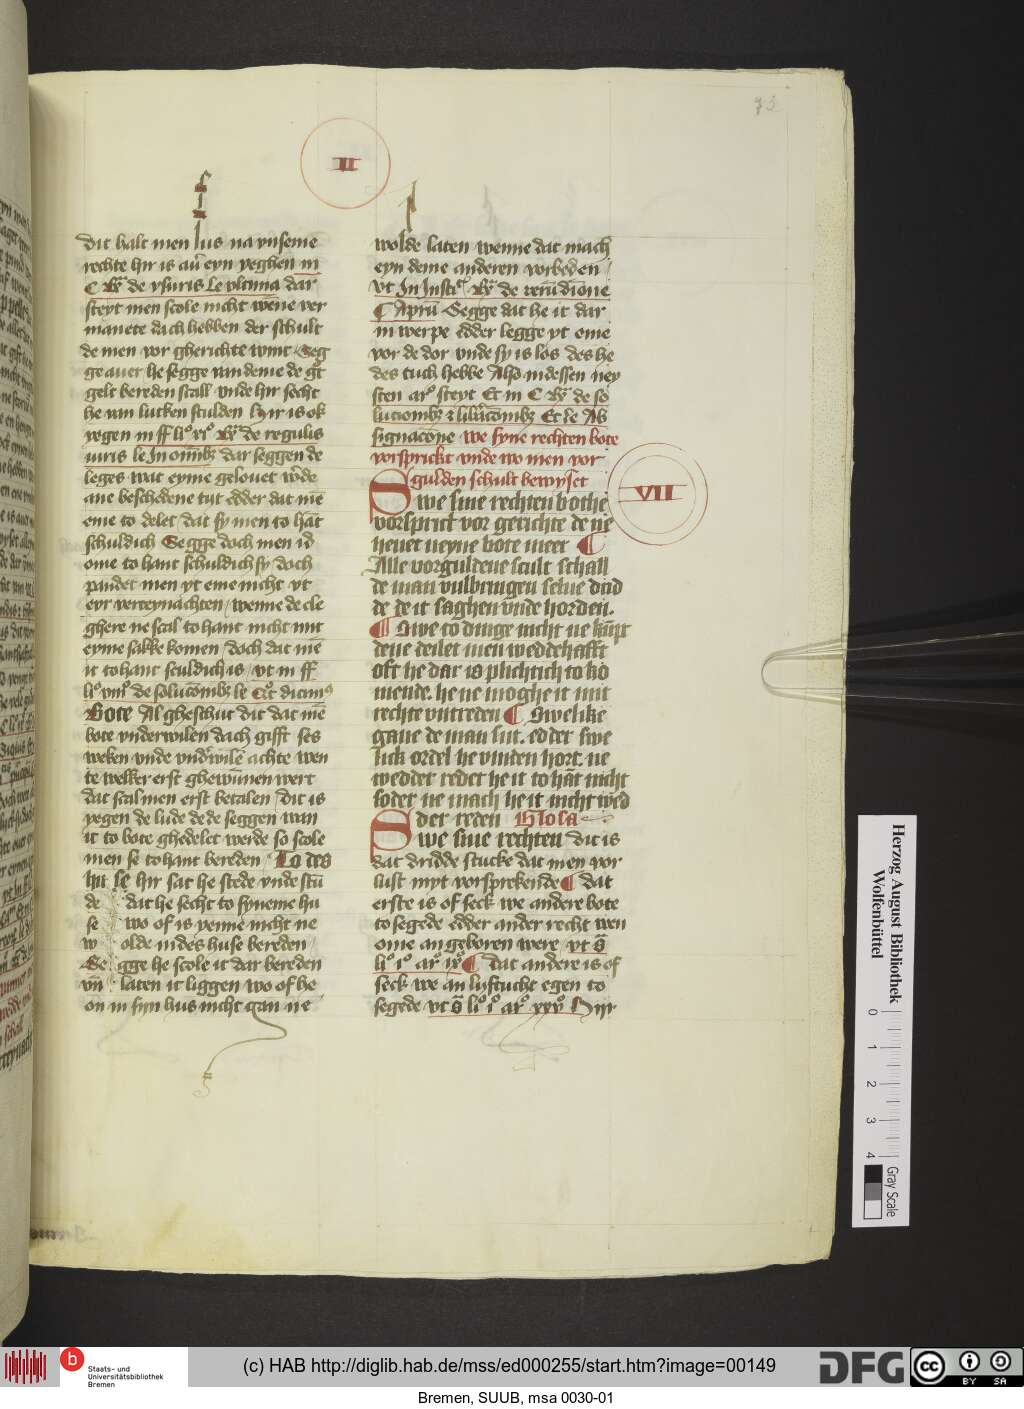 73
II
dit halt men jus na unseme
rechte hir is aũ eyn yeghen in
C R͛ de vsuris le vltima dar
steyt men scole nicht wene ver
manete dach hebben der schult
de men vor gherichte wint Seg
ge auer he segge van deme de gt̃
gelt bereden scall vnde hir secht
he van lutken sculden hir is ok
yegen in ff li° xi° R͛ de regulis
iuris le In omĩbꝫ dar seggen de
leges wat eyme gelouet w̃de
ane beschedene tijt edder dat mẽ
eme to delet dat sy men to hãt
schuldich Segge doch men iɗ
ome to hant schuldich sy doch
pandet men yt eme nicht vt
eyr verteynachten wenne de cle
ghere ne scal to hant nicht mit
eyme sakke komen doch dat mẽ
it to hant sculdich is vt in ff
li° viii° de solucõnibꝫ le
Bote Al gheschut dit dat mẽ
bote vnderwilen dach gifft ses
weken vnde vnd̃wilẽ achte wen
te welker erst ghewũnen wert
dat scal men erst betalen dit is
yegen de lude de de seggen wan
it to bote ghedelet werde so scole
men se to hant bereden To des
hir se hir sat he stede vnde stũ
de dat he secht to syneme hu
se wo of is yenne nicht ne
w olde in des huse bereden
Se gge he scole it dar bereden
vñ laten it liggen wo of he
on in syn hus nicht gan ne
wolde laten wenne dat mach
eyn deme anderen vorbeden
vt In Instit͛ R͛ de rerũ diuine
¶ Aprũ Segge dat he it dar
in werpe edder legge yt eme
vor de dor vnde sy is los des he
des tuch hebbe Also in dessen ney
sten ar° steyt Et in C R͛ de so
lucionibꝫ ⁊ lib̃acõnibꝫ Et le Ab
signacõne we syne rechten bote
vorsprickt vnde wo men vor
gulden schult bewyset
VII
Swe sine rechten bothe
vorsprict vor gerichte de ne
heuet neyne bote meer ¶
Alle vorguldene scult schall
de man vulbringen selue drid
de de it saghen vnde horden.
¶ Swe to dinge nicht ne kũpt
deme deilet men weddehafft
oft he dar is plichtich to ko
mende. he ne moghe it mit
rechte vntreden ¶ Swelike
gaue de man lut. edder swe
lick ordel he vinden hort. ne
weddet redet he it to hãt nicht
soder ne mach he it nicht wed
der reden Glosa
Swe sine rechten dit is
dat dridde stucke dat men vor
lust myt vorsprekende ¶ dat
erste is of seck we andere bote
to segede edder ander recht wen
ome an geboren were vt s̃
li° i° ar° ¶ dat andere is of
seck we an lyftucht egen to
segede vt s̃ li° i° ar° xxx° Hiir
Herzog August Bibliothek
Wolfenbüttel
0 1 2 3 4
Gray Scale
b
Staats- und
Universitätsbibliothek
Bremen
(c) HAB http://diglib.hab.de/mss/ed000255/start.htm?image=00149
DFG
cc BY SA
Bremen, SUUB, msa 0030-01